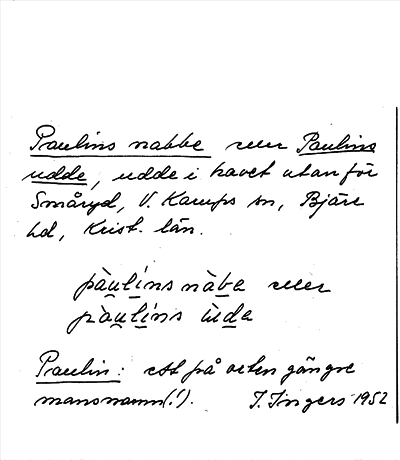 Paulins nabbe eller Paulins
udde, udde i havet utanför
Småryd, V. Karups sn, Bjäre
hd, Krist. län.
pàulíns nàbe eller
pàulíns ùda
Paulin: ett på orten gängse
mansnamn(!). I. Ingers 1952